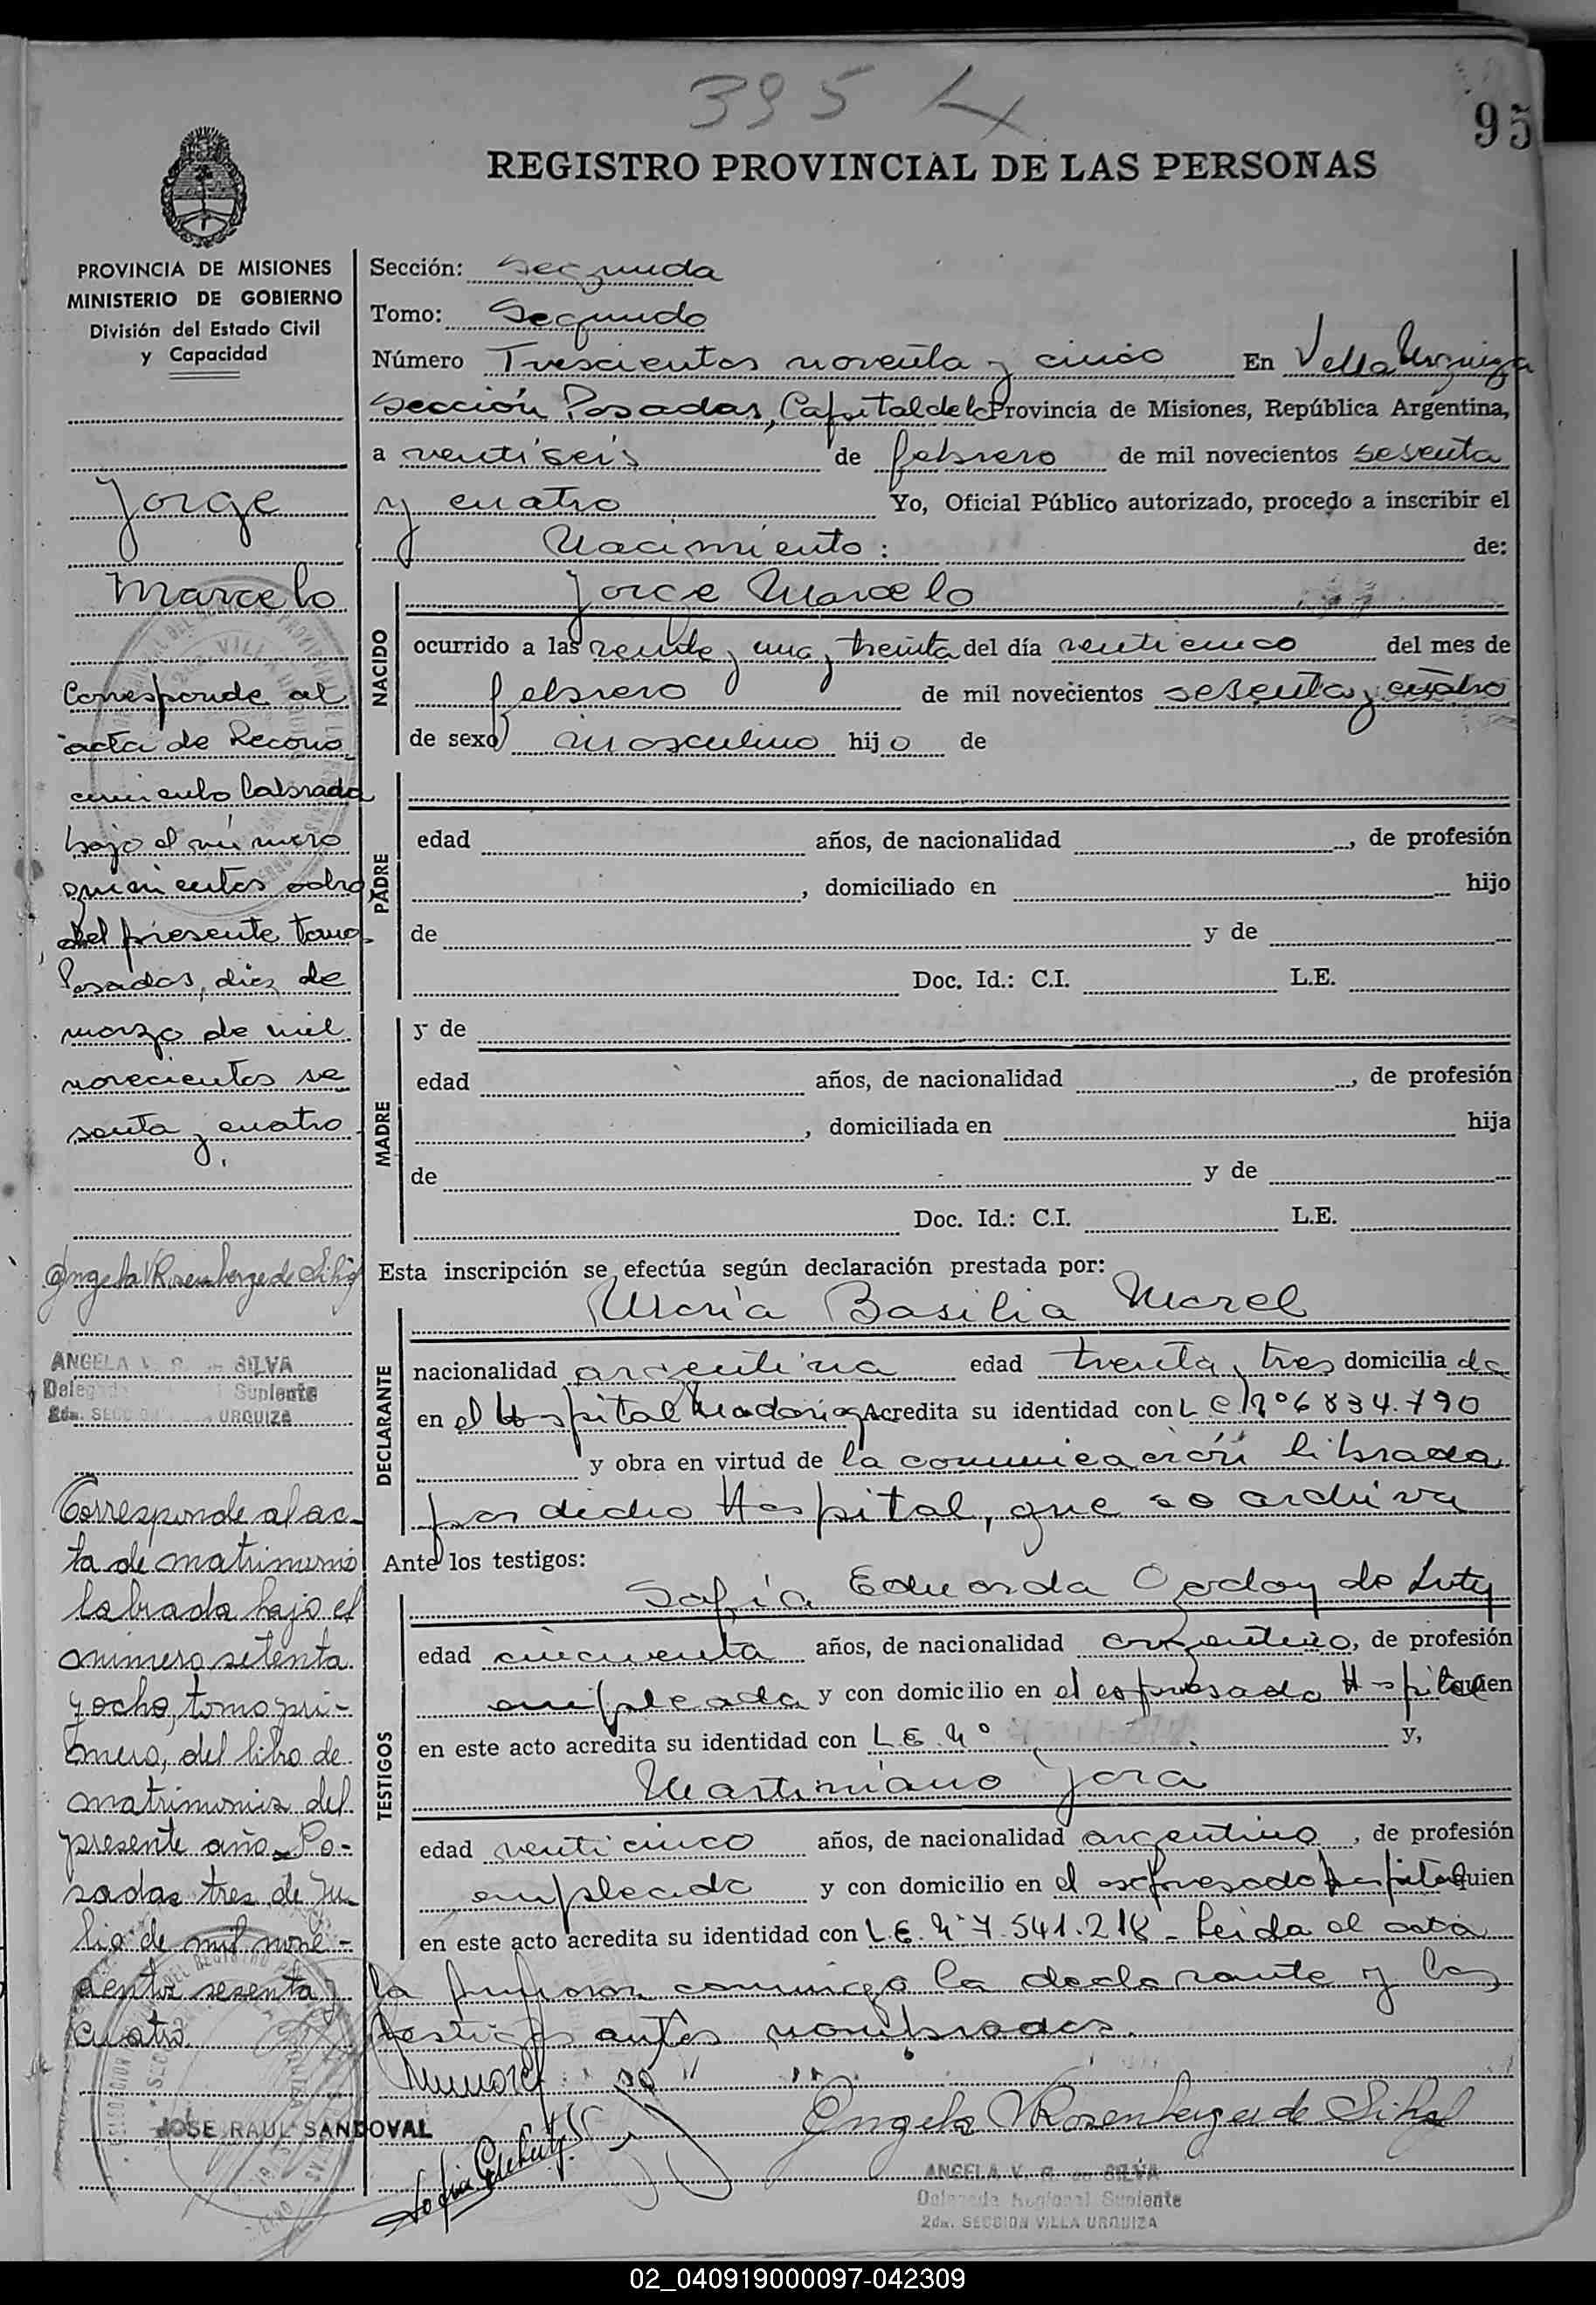 395
95
REGISTRO PROVINCIAL DE LAS PERSONAS
PROVINCIA DE MISIONES
MINISTERIO DE GOBIERNO
División del Estado Civil
y Capacidad
Jorge
Marcelo
Corresponde al
acta de Recono
cimiento labrada
bajo el número
quinientos ocho
del presente tomo
Posadas, diez de
marzo de mil
novecientos se
senta y cuatro
Angela V. Rosenberger de Silva
ANGELA V. R. de SILVA
Delegada Suplente
2da. SECCION VILLA URQUIZA
Corresponde al ac-
ta de matrimonio
labrada bajo el
número setenta
y ocho, tomo pri-
mero, del libro de
matrimonios del
presente año. Po-
sadas tres de Ju-
lio de mil nove-
cientos sesenta y
cuatro.
JOSE RAUL SANDOVAL
Sección: Segunda
Tomo: Segundo
Número Trescientos noventa y cinco En Villa Urquiza
Sección Posadas, Capital de la Provincia de Misiones, República Argentina,
a ventiseis de febrero de mil novecientos sesenta
y cuatro Yo, Oficial Público autorizado, procedo a inscribir el
Nacimiento: de:
NACIDO
Jorge Marcelo
ocurrido a las veinte y una y treinta del día venticinco del mes de
febrero de mil novecientos sesenta y cuatro
de sexo masculino hijo de
PADRE
edad años, de nacionalidad , de profesión
, domiciliado en hijo
de y de
Doc. Id.: C.I. L.E.
MADRE
y de
edad años, de nacionalidad , de profesión
, domiciliada en hija
de y de
Doc. Id.: C.I. L.E.
Esta inscripción se efectúa según declaración prestada por:
DECLARANTE
María Basilia Morel
nacionalidad argentina edad treinta y tres domicilia da
en el Hospital Madariaga Acredita su identidad con L C Nº 6834.790
y obra en virtud de la comunicación librada
por dicho Hospital, que se archiva
Ante los testigos:
TESTIGOS
Sofía Eduarda Godoy de Luty
edad cincuenta años, de nacionalidad argentino, de profesión
empleada y con domicilio en el expresado Hospital quien
en este acto acredita su identidad con L.E. Nº y,
Martiniano Jara
edad venticinco años, de nacionalidad argentino, de profesión
empleado y con domicilio en el expresado Hospital quien
en este acto acredita su identidad con L.E. Nº 7.541.218 - Leida el acta
la firman conmigo la declarante y los
testigos antes nombrados.
Angela V Rosenberger de Silva
ANGELA V. R. de SILVA
Delegada Regional Suplente
2da. SECCION VILLA URQUIZA
02_040919000097-042309